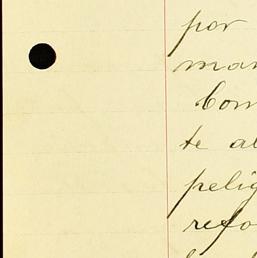 por
man
Com
te al
pelig
refo